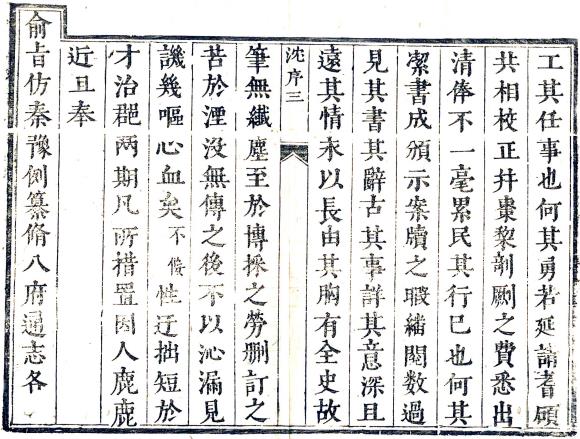 工其任事也何其勇若延請耆碩
共相校正并棗黎剞劂之費悉出
清俸不一毫累民其行巳也何其
潔書成頒示案牘之暇繙閱數過
見其書其辭古其事詳其意深且
遠其情永以長由其胸有全史故
沈序三
筆無纖塵至於博採之勞刪訂之
苦於湮沒無傳之後不以沁漏見
譏幾嘔心血矣不佞性迂拙短於
才治郡兩期凡所措置因人鹿鹿
近且奉
俞旨仿秦豫例纂脩八府通志各